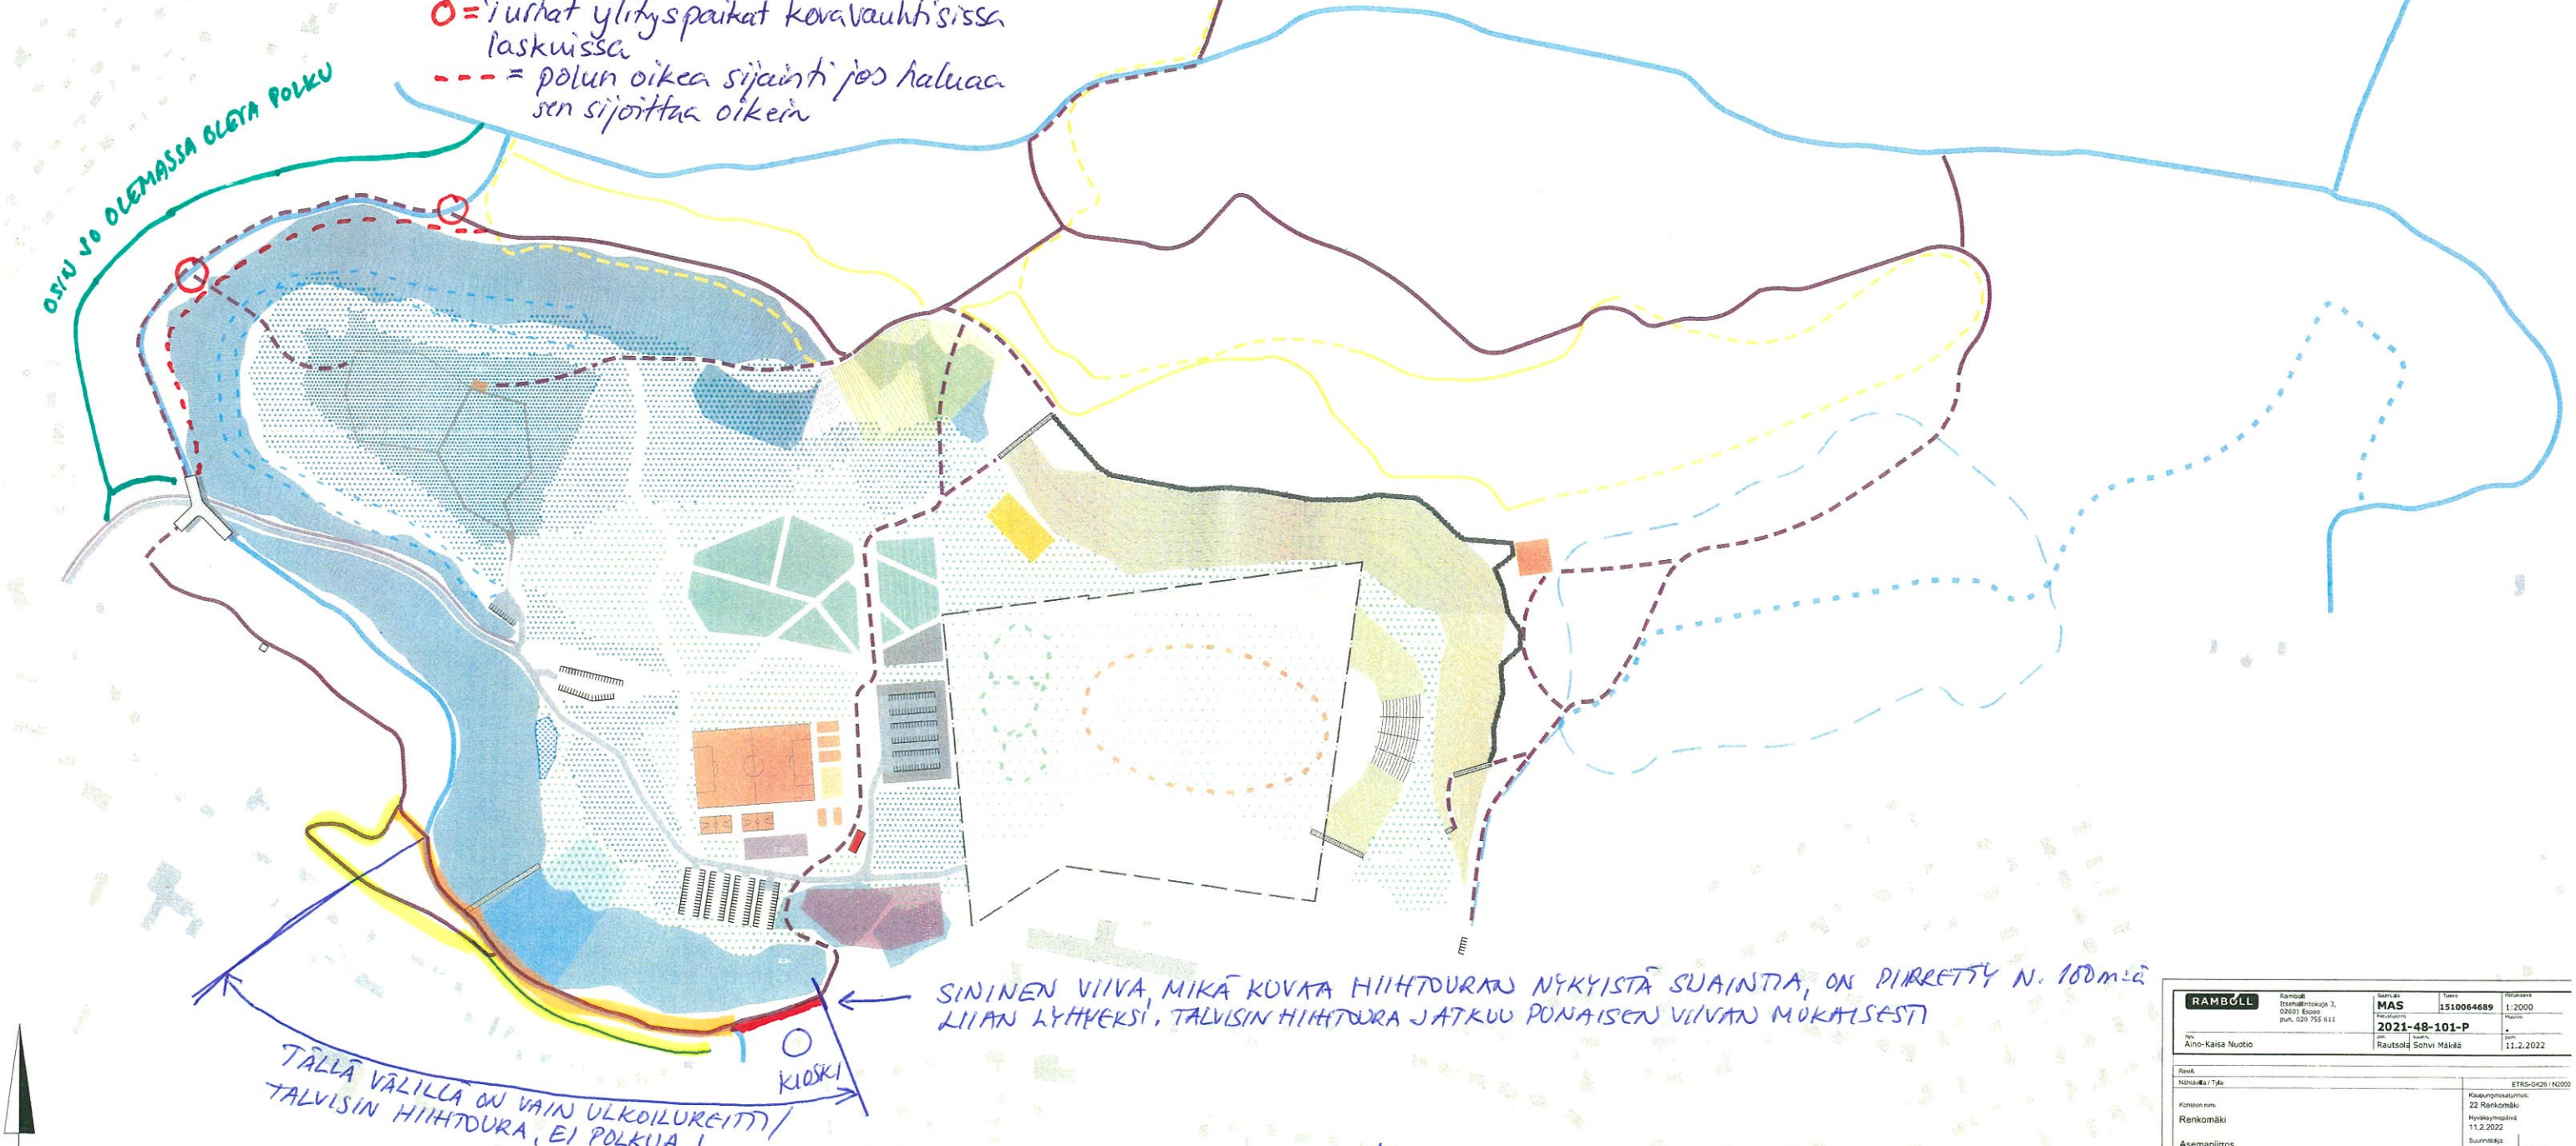 O = Turhat ylityspaikat kovavauhtisissa
laskuissa
--- = polun oikea sijainti jos haluaa
sen sijoittaa oikein
OSIN JO OLEMASSA OLEVA POLKU
SININEN VIIVA, MIKÄ KUVAA HIIHTOURAN NYKYISTÄ SIJAINTIA, ON PIIRRETTY N. 100m:ä
LIIAN LYHYEKSI. TALVISIN HIIHTOURA JATKUU PUNAISEN VIIVAN MUKAISESTI
KIOSKI
TÄLLÄ VÄLILLÄ ON VAIN ULKOILUREITTI/
TALVISIN HIIHTOURA, EI POLKUA!
RAMBOLL
Ramboll
Itsehallintokuja 3,
02601 Espoo
puh. 020 755 611
MAS
1510064689
1:2000
2021-48-101-P
.
Aino-Kaisa Nuotio
Rautsola Sohvi Mäkilä
11.2.2022
RevA
Nähtävillä / Tyla
ETRS-GK26 / N2000
Kaupunginosatunnus:
22 Renkomäki
Kohteen nimi
Renkomäki
Hyväksymispäivä
11.2.2022
Suunnittelija
Asemapiirros